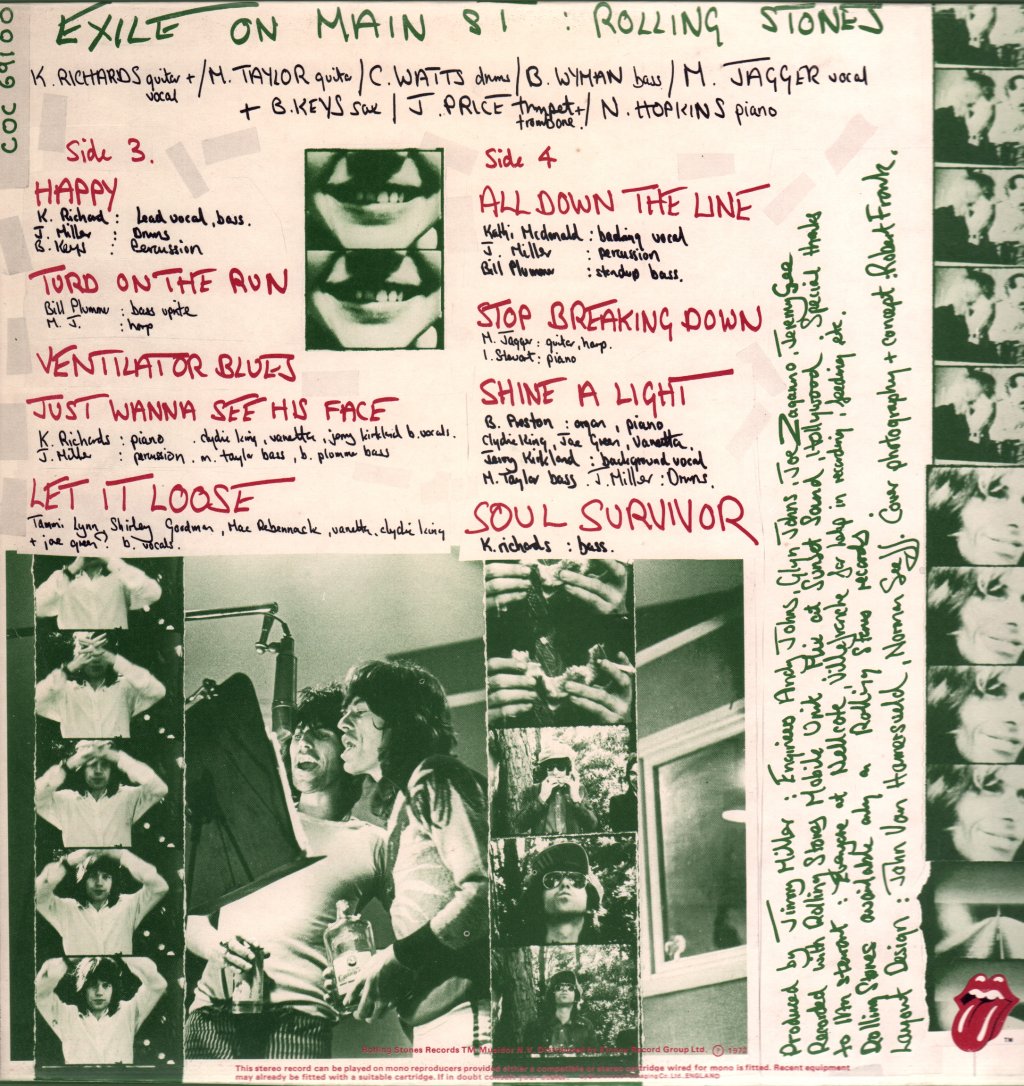 COC 69100
EXILE ON MAIN ST : ROLLING STONES
K. RICHARDS guitar + vocal / M. TAYLOR guitar / C. WATTS drums / B. WYMAN bass / M. JAGGER vocal
+ B. KEYS sax / J. PRICE trumpet + trombone. / N. HOPKINS piano
Side 3.
HAPPY
K. Richard : Lead vocal, bass.
J. Miller : Drums
B. Keys : Percussion
TURD ON THE RUN
Bill Plummer : bass uprite
M. J. : harp
VENTILATOR BLUES
JUST WANNA SEE HIS FACE
K. Richards : piano . clydie king, vanetta, jerry kirkland b. vocals.
J. Miller : percussion. m. taylor bass, b. plummer bass
LET IT LOOSE
Tammi Lynn, Shirley Goodman, Mac Rebennack, vanetta, clydie king
+ joe green : b. vocals.
Side 4
ALL DOWN THE LINE
Kathi Mcdonald : backing vocal
J. Miller : percussion
Bill Plummer : standup bass.
STOP BREAKING DOWN
M. Jagger : guitar, harp.
I. Stewart : piano
SHINE A LIGHT
B. Preston : organ, piano
Clydie King, Joe Green, Vanetta,
Jerry Kirkland : background vocal
M. Taylor bass. J. Miller : Drums.
SOUL SURVIVOR
K. richards : bass.
Produced by Jimmy Miller : Engineers Andy Johns, Glyn Johns, Joe Zaganno, Jeremy Gee
Recorded with Rolling Stones Mobile Unit. Mix at Sunset Sound, Hollywood. Special thanks
to Ian stewart : Everyone at Nellcote, Villefranche for help in recording, feeding etc.
Rolling Stones available only on Rolling Stones records
Layout Design : John Van Hamersveld, Norman Seeff. Cover photography + concept : Robert Frank.
TM
Rolling Stones Records TM Musidor N.V. Distributed by Record Group Ltd. ℗ 1972
This stereo record can be played on mono reproducers provided either a compatible or stereo cartridge wired for mono is fitted. Recent equipment
may already be fitted with a suitable cartridge. If in doubt consult your dealer. Packaging Co. Ltd. ENGLAND